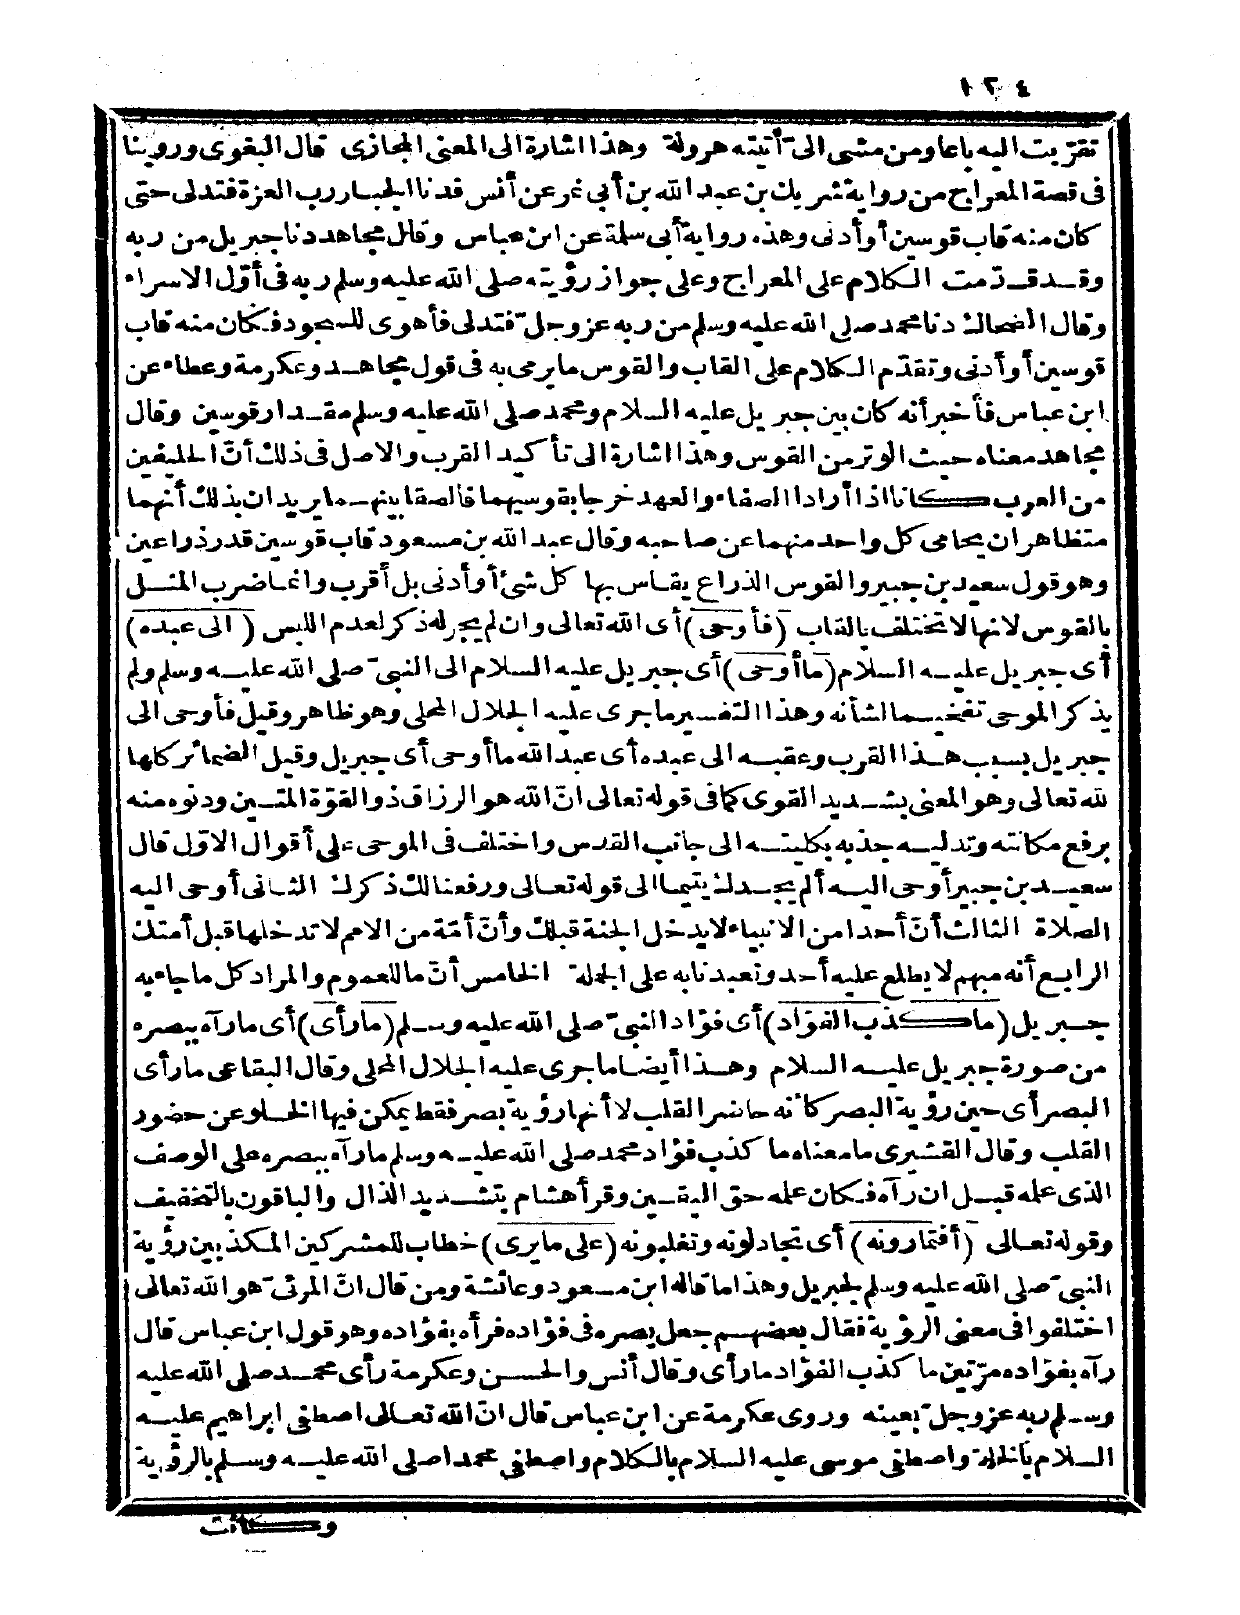 ١٢٤
تقرّبت اليه باعا ومن مشى الىّ أتيته هرولة وهذا اشارة الى المعنى المجازى قال البغوى وروينا
فى قصة المعراج من رواية شريك بن عبد الله بن أبي نمر عن أنس فدنا الجبار رب العزة فتدلى حتى
كان منه قاب قوسين أو أدنى وهذه رواية أبى سلمة عن ابن عباس وقال مجاهد دنا جبريل من ربه
وقد قدّمت الكلام على المعراج وعلى جواز رؤيته صلى الله عليه وسلم ربه فى أوّل الاسراء
وقال الضحاك دنا محمد صلى الله عليه وسلم من ربه عز وجلّ فتدلى فأهوى للسجود فكان منه قاب
قوسين أو أدنى وتقدّم الكلام على القاب والقوس ما يرمى به فى قول مجاهد وعكرمة وعطاء عن
ابن عباس فأخبر أنه كان بين جبريل عليه السلام ومحمد صلى الله عليه وسلم مقدار قوسين وقال
مجاهد معناه حيث الوتر من القوس وهذا اشارة الى تأكيد القرب والاصل فى ذلك أنّ الحليفين
من العرب كانا اذا أرادا الصفاء والعهد خرجا بقوسيهما فالصقا بينهما يريدان بذلك أنهما
متظاهران يحامى كل واحد منهما عن صاحبه وقال عبد الله بن مسعود قاب قوسين قدر ذراعين
وهو قول سعيد بن جبير والقوس الذراع يقاس بها كل شئ أو أدنى بل أقرب وانما ضرب المثل
بالقوس لانها لا تختلف بالقاب (فأوحى) أى الله تعالى وان لم يجر له ذكر لعدم اللبس (الى عبده)
أى جبريل عليه السلام (ما أوحى) أى جبريل عليه السلام الى النبىّ صلى الله عليه وسلم ولم
يذكر الموحى تفخيما لشأنه وهذا التفسير ما جرى عليه الجلال المحلى وهو ظاهر وقيل فأوحى الى
جبريل بسبب هذا القرب وعقبه الى عبده أى عبد الله ما أوحى أى جبريل وقيل الضمائر كلها
لله تعالى وهو المعنى بشديد القوى كما فى قوله تعالى انّ الله هو الرزاق ذو القوّة المتين ودنوه منه
برفع مكانته وتدليه جذبه بكليته الى جانب القدس واختلف فى الموحى على أقوال الاوّل قال
سعيد بن جبير أوحى اليه ألم يجدك يتيما الى قوله تعالى ورفعنا لك ذكرك الثانى أوحى اليه
الصلاة الثالث أنّ أحدا من الانبياء لا يدخل الجنة قبلك وأنّ أمّة من الامم لا تدخلها قبل أمتك
الرابع أنه مبهم لا يطلع عليه أحد وتعبدنا به على الجملة الخامس أنّ ما للعموم والمراد كل ما جاء به
جبريل (ما كذب الفؤاد) أى فؤاد النبىّ صلى الله عليه وسلم (ما رأى) أى ما رآه ببصره
من صورة جبريل عليه السلام وهذا أيضا ما جرى عليه الجلال المحلى وقال البقاعى ما رأى
البصر أى حين رؤية البصر كأنه حاضر القلب لا أنها رؤية بصر فقط يمكن فيها الخلو عن حضور
القلب وقال القشيرى ما معناه ما كذب فؤاد محمد صلى الله عليه وسلم ما رآه ببصره على الوصف
الذى علمه قبل ان رآه فكان علمه حق اليقين وقرأ هشام بتشديد الذال والباقون بالتخفيف
وقوله تعالى (أفتمارونه) أى تجادلونه وتغلبونه (على ما يرى) خطاب للمشركين المكذبين رؤية
النبىّ صلى الله عليه وسلم لجبريل وهذا ما قاله ابن مسعود وعائشة ومن قال انّ المرئىّ هو الله تعالى
اختلفوا فى معنى الرؤية فقال بعضهم جعل بصره فى فؤاده فرأه بفؤاده وهو قول ابن عباس قال
رآه بفؤاده مرّتين ما كذب الفؤاد ما رأى وقال أنس والحسن وعكرمة رأى محمد صلى الله عليه
وسلم ربه عز وجلّ بعينه وروى عكرمة عن ابن عباس قال انّ الله تعالى اصطفى ابراهيم عليه
السلام بالخلة واصطفى موسى عليه السلام بالكلام واصطفى محمدا صلى الله عليه وسلم بالرؤية
وكانت